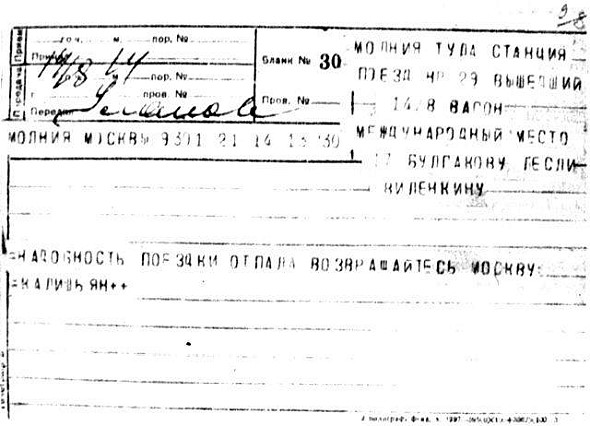 9/8
го ч. м. пор. №
14/8 14
пор. №
пров. №
Передал
Прием
Передача
Бланк № 30
Пров. №
МОЛНИЯ ТУЛА СТАНЦИЯ
ПОЕЗД НР 29 ВЫШЕДШИЙ
14.8 ВАГОН
МЕЖДУНАРОДНЫЙ МЕСТО
17 БУЛГАКОВУ ГЕСЛИ
ВИЛЕНКИНУ
МОЛНИЯ МОСКВЫ 9301 21 14 13 30
=НАДОБНОСТЬ ПОЕЗДКИ ОТПАЛА ВОЗВРАЩАЙТЕСЬ МОСКВУ
=КАЛИШЬЯН++